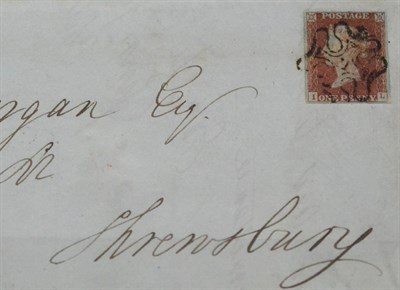 POSTAGE
I ONE PENNY L
rgan Esq.
Shrewsbury